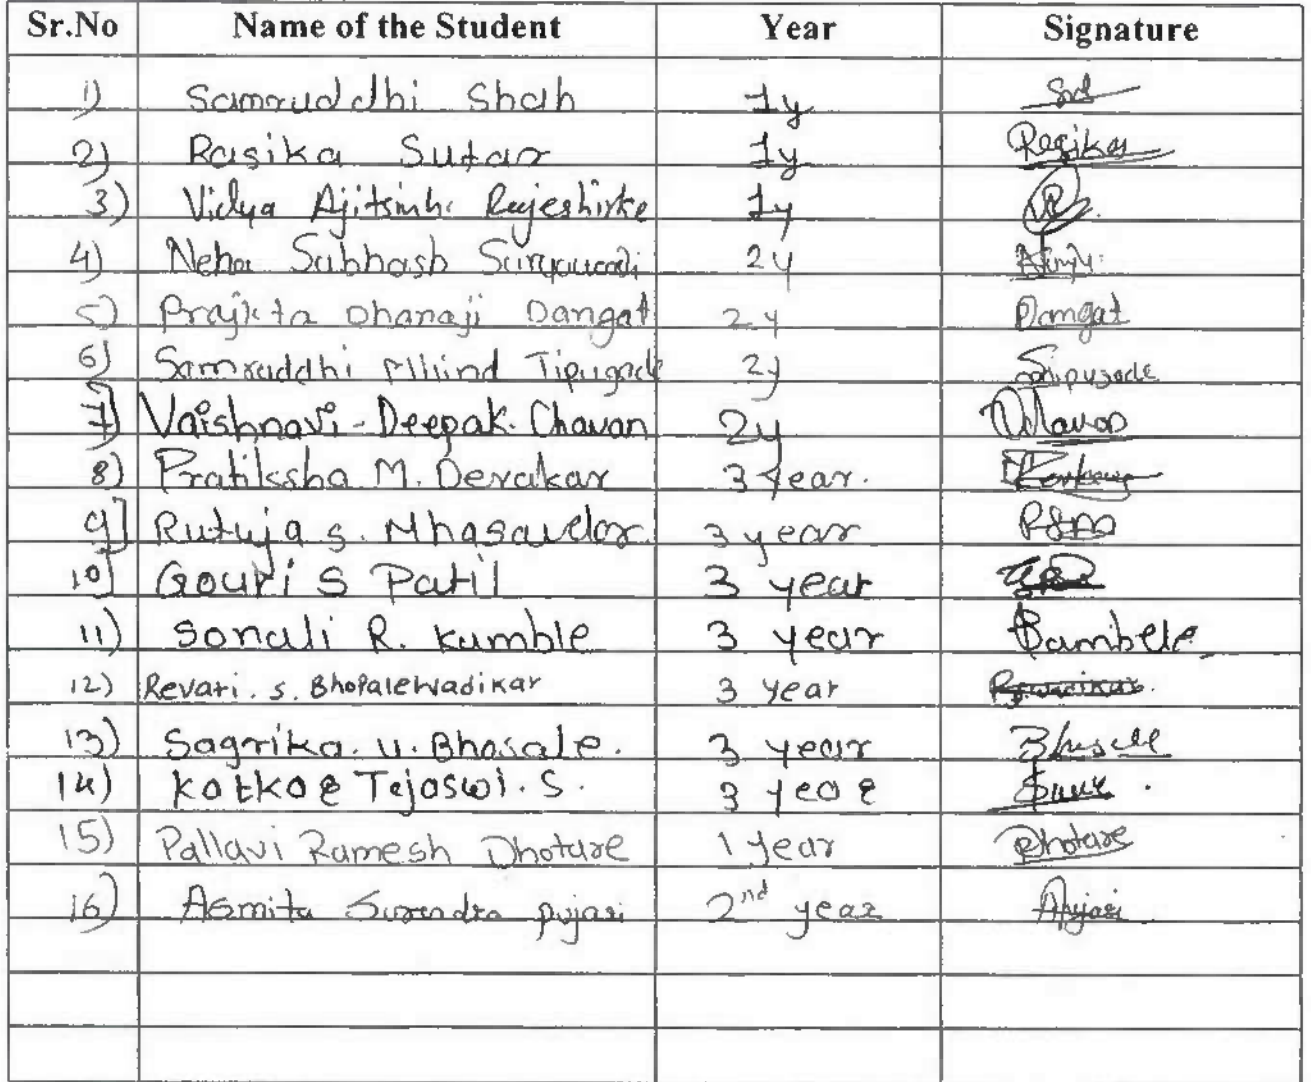 Sr.No Name of the Student Year Signature
1) Samruddhi Shah 1y
2) Rasika Sutar 1y Rasika
3) Vidya Ajitsinh Rajeshirke 1y
4) Neha Subhash 2y
5) Prajkta Dhanaji Dangat 2y Dangat
6) Samruddhi Milind Tipugade 2y
7] Vaishnavi-Deepak. Chavan 2y
8) Pratiksha M. Devakar 3 Year.
9] Rutuja S. 3 year RSM
10] Gouri S Patil 3 year
11) Sonali R. Kumble 3 year
12) Revati. S. Bhopalewadikar 3 year
13) Sagrika. U. Bhosale. 3 year
14) Katkar Tejaswi. S. 3 year
15) Pallavi Ramesh Dhotare 1 year Dhotare
16) Asmita Surendra pujari 2nd year Apujari